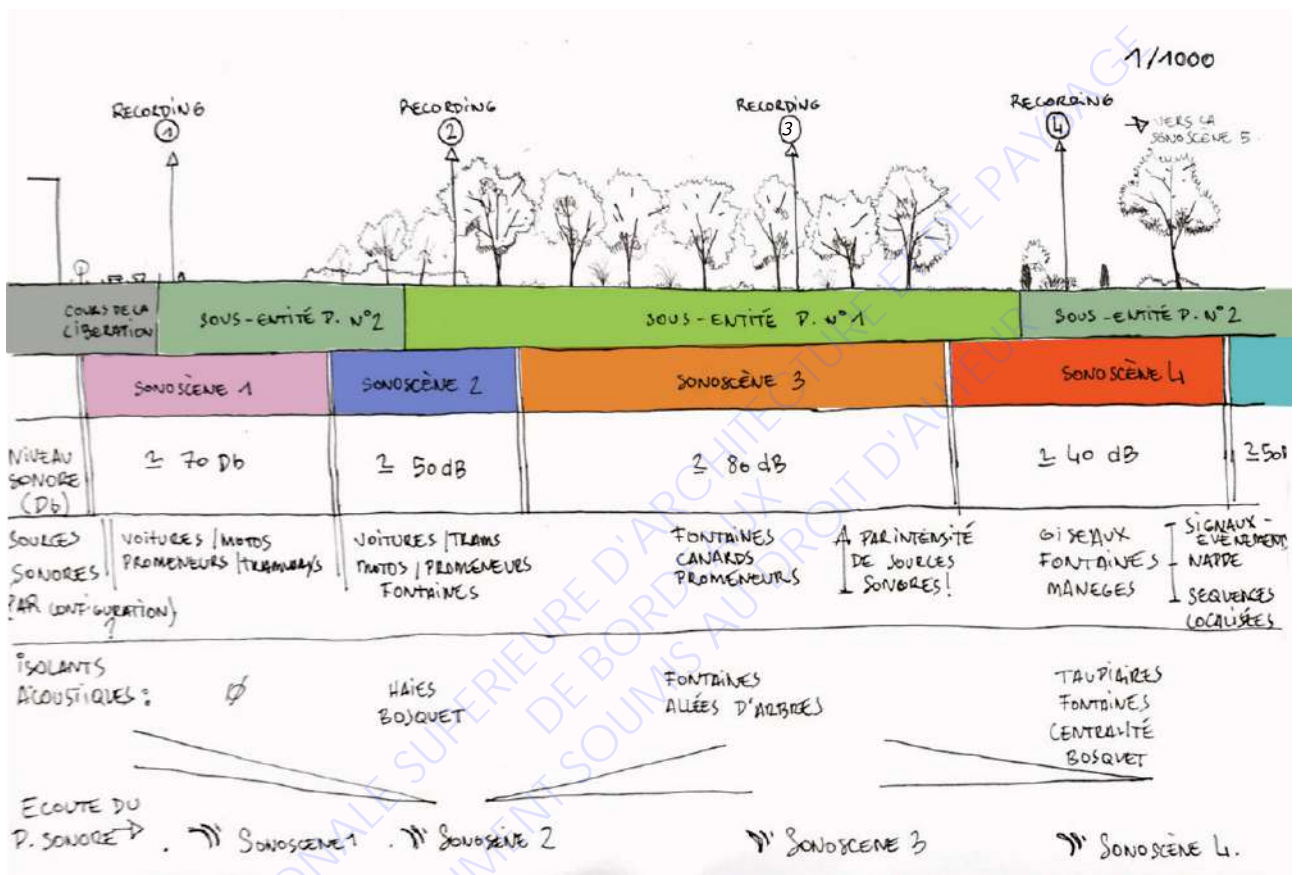 1/1000
RECORDING
1
RECORDING
2
RECORDING
3
RECORDING
4
VERS LA
SONOSCÈNE 5.
COURS DE LA
LIBERATION
SOUS-ENTITÉ P. N°2
SOUS-ENTITÉ P. N°1
SOUS-ENTITÉ P. N°2
SONOSCÈNE 1
SONOSCÈNE 2
SONOSCÈNE 3
SONOSCÈNE 4
NIVEAU
SONORE
(Db)
≃ 70 Db
≃ 50 dB
≃ 80 dB
≃ 40 dB
≃ 50
SOURCES
SONORES
(PAR CONFIGURATION)
VOITURES / MOTOS
PROMENEURS / TRAMWAYS
VOITURES / TRAMS
MOTOS / PROMENEURS
FONTAINES
FONTAINES
CANARDS
PROMENEURS
PAR INTENSITÉ
DE SOURCES
SONORES!
OISEAUX
FONTAINES
MANEGES
SIGNAUX-
EVENEMENT
NAPPE
SEQUENCES
LOCALISÉES
ISOLANTS
ACOUSTIQUES :
Ø
HAIES
BOSQUET
FONTAINES
ALLÉES D'ARBRES
TAUPIAIRES
FONTAINES
CENTRALITÉ
BOSQUET
ECOUTE DU
P. SONORE
SONOSCENE 1
SONOSCÈNE 2
SONOSCENE 3
SONOSCÈNE 4.
ONALE SUPERIEURE D'ARCHITECTURE ET DE PAYSAGE
DE BORDEAUX
UMENT SOUMIS AU DROIT D'AUTEUR